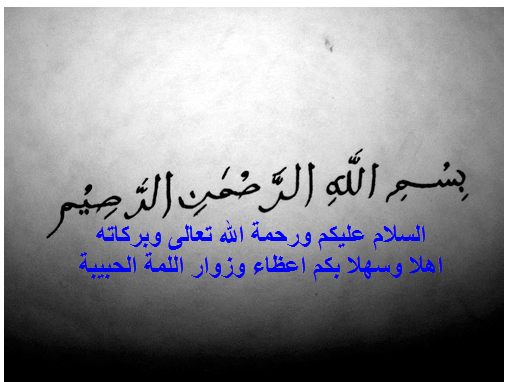 بِسْمِ اللَّهِ الرَّحْمَنِ الرَّحِيْمِ
السلام عليكم ورحمة الله تعالى وبركاته
اهلا وسهلا بكم اعظاء وزوار اللمة الحبيبة